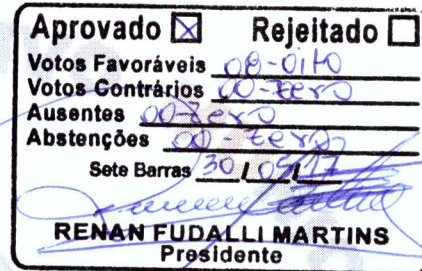 Aprovado ☒ Rejeitado ☐
Votos Favoráveis 08-oito
Votos Contrários 00-zero
Ausentes 00-zero
Abstenções 00-zero
Sete Barras 30/05/17
RENAN FUDALLI MARTINS
Presidente